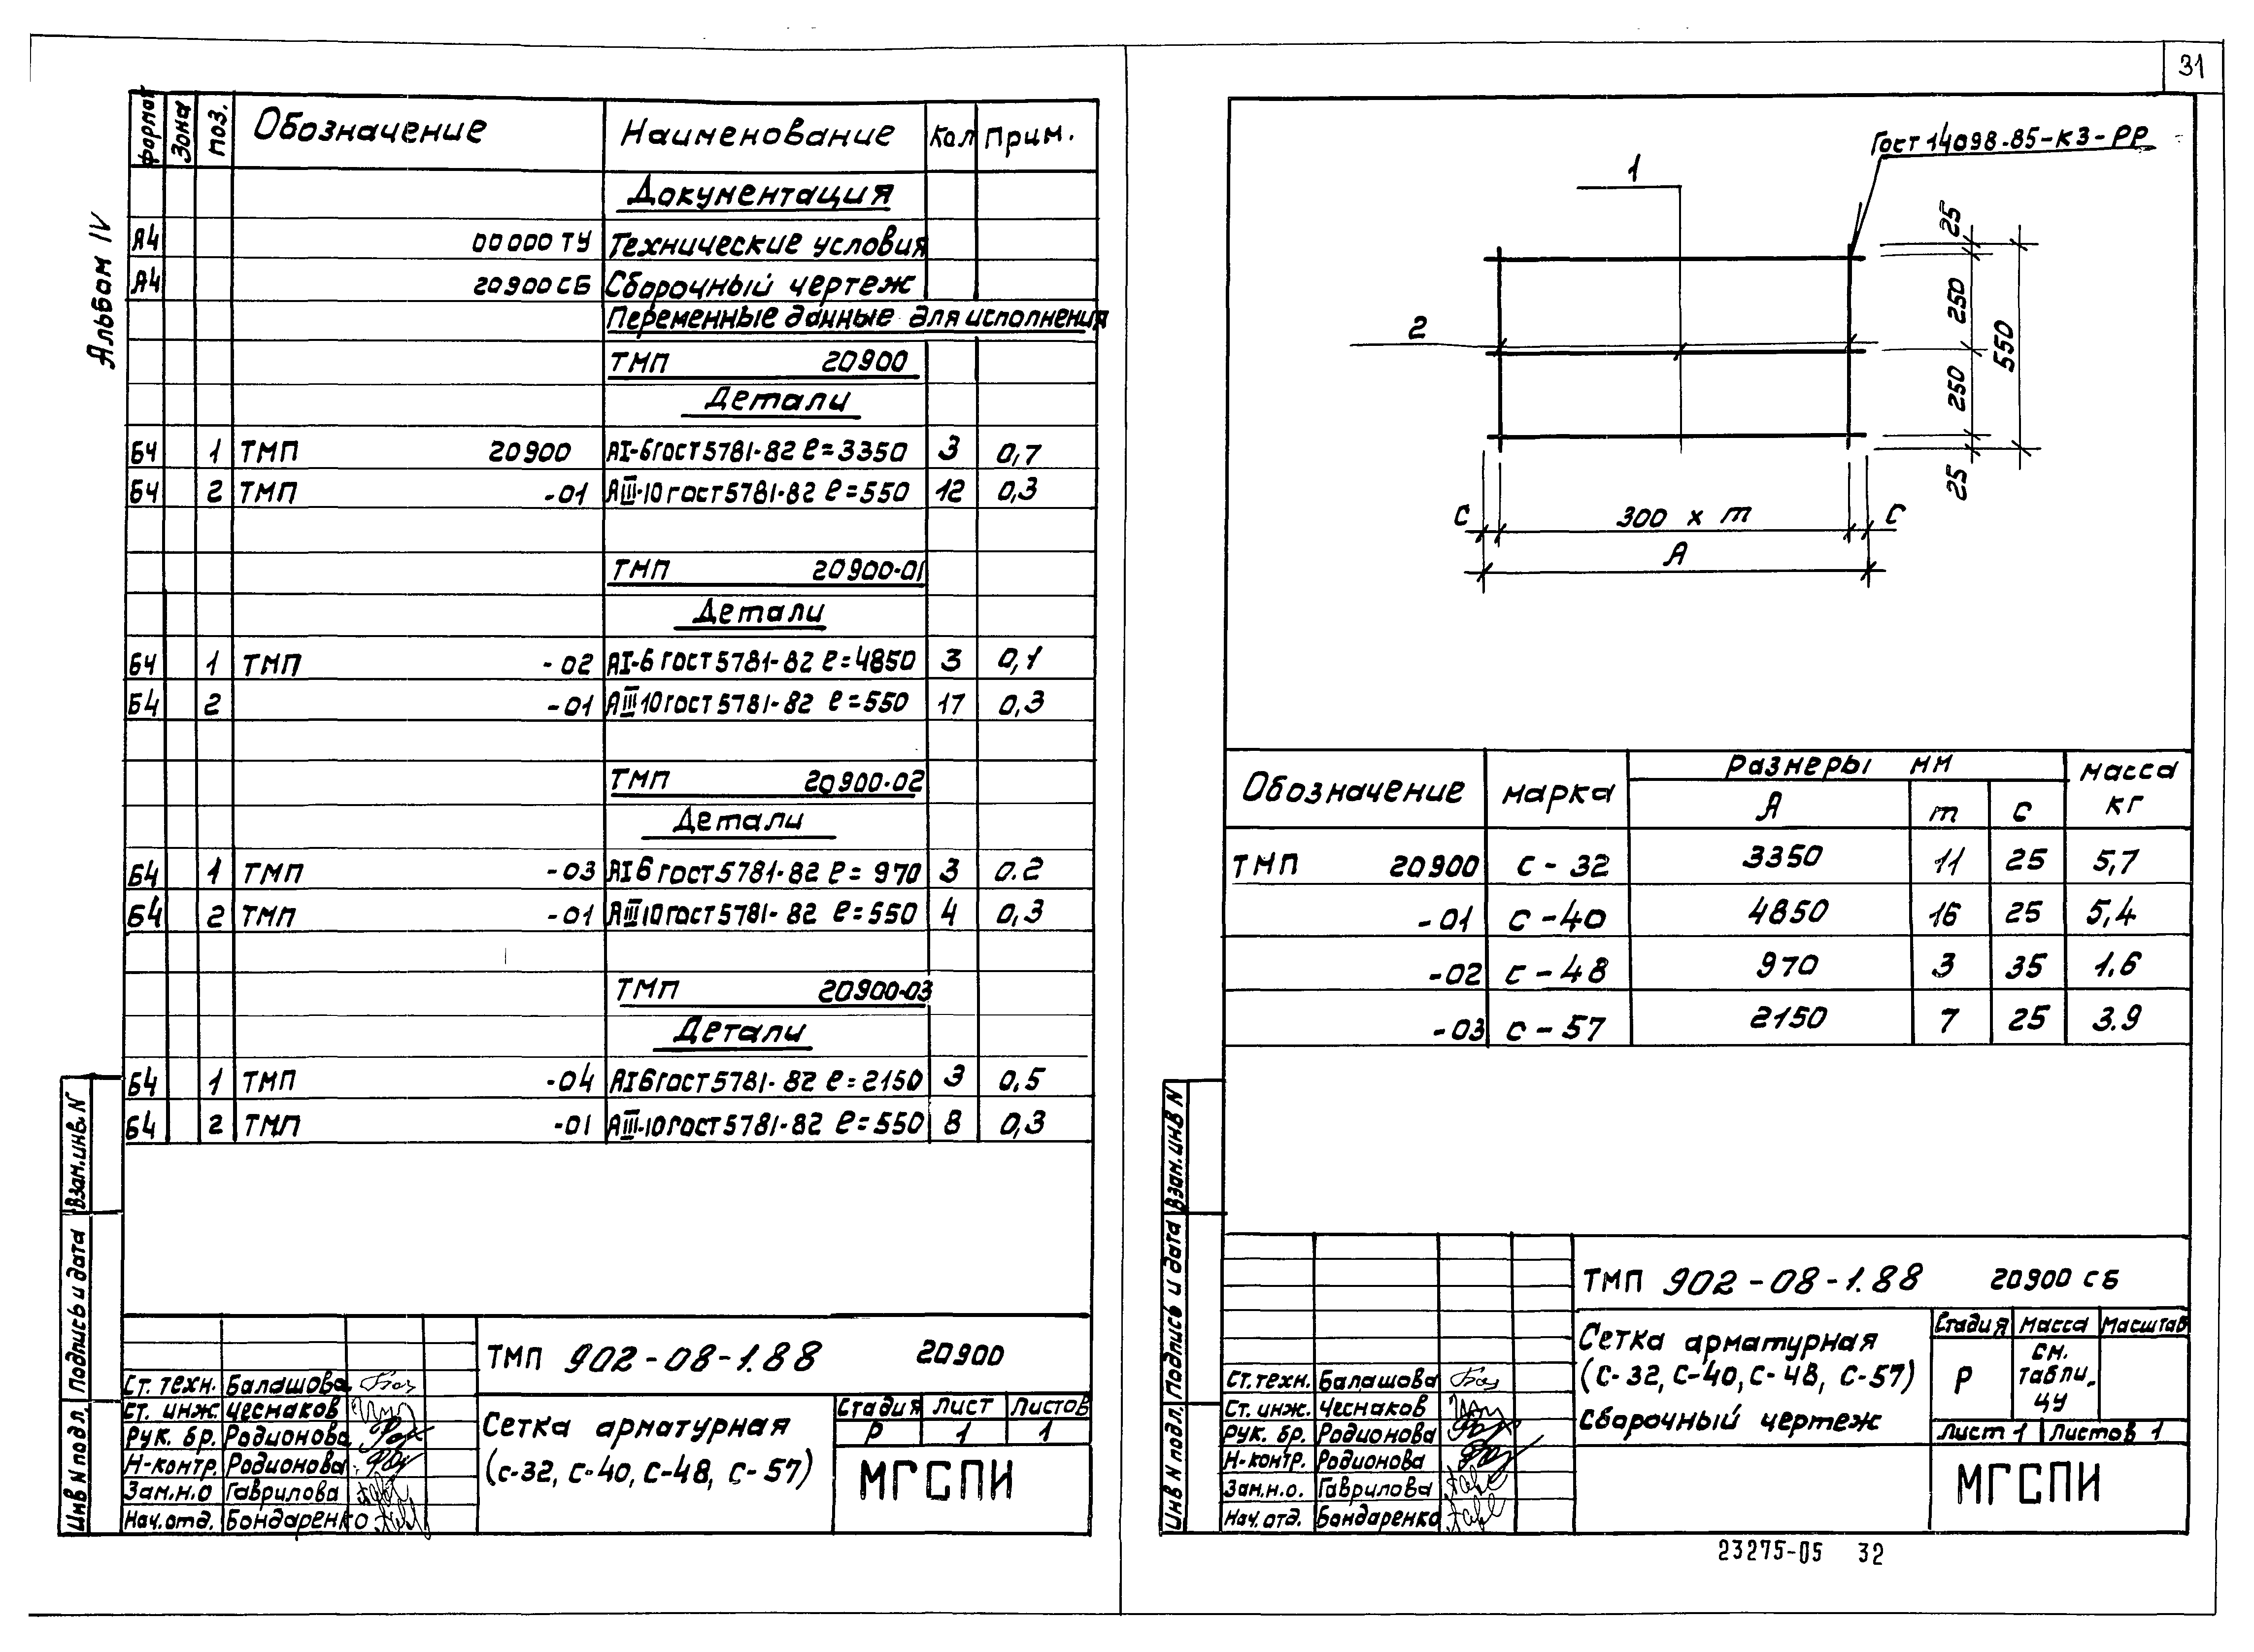 31
Альбом IV
формат Зона поз. Обозначение Наименование Кол Прим.
Документация
А4 00000 ТУ Технические условия
А4 20900 СБ Сборочный чертеж
Переменные данные для исполнения
ТМП 20900
Детали
Б4 1 ТМП 20900 АI-6 гост 5781-82 ℓ=3350 3 0,7
Б4 2 ТМП -01 АIII-10 гост 5781-82 ℓ=550 12 0,3
ТМП 20900-01
Детали
Б4 1 ТМП -02 АI-6 гост 5781-82 ℓ=4850 3 0,1
Б4 2 -01 АIII 10 гост 5781-82 ℓ=550 17 0,3
ТМП 20900-02
Детали
Б4 1 ТМП -03 АI 6 гост 5781-82 ℓ=970 3 0.2
Б4 2 ТМП -01 АIII 10 гост 5781-82 ℓ=550 4 0,3
ТМП 20900-03
Детали
Б4 1 ТМП -04 АI 6 гост 5781-82 ℓ=2150 3 0,5
Б4 2 ТМП -01 АIII-10 гост 5781-82 ℓ=550 8 0,3
Взам.инв. N
Подпись и дата
Инв N подл.
ТМП 902-08-1.88 20900
Ст. техн. Балашова
Ст. инж. Чеснаков
Рук. бр. Родионова
Н-контр. Родионова
Зам.н.о Гаврилова
Нач.отд. Бондаренко
Сетка арматурная
(с-32, с-40, с-48, с-57)
Стадия Лист Листов
Р 1 1
МГСПИ
Гост 14098-85-К3-РР
1
2
25
250
250
25
550
С 300 х m С
А
Обозначение марка Размеры мм масса кг
А m с
ТМП 20900 с-32 3350 11 25 5,7
-01 с-40 4850 16 25 5,4
-02 с-48 970 3 35 1.6
-03 с-57 2150 7 25 3.9
Взам.инв N
Подпись и дата
Инв N подл.
ТМП 902-08-1.88 20900 СБ
Ст.техн. Балашова
Ст. инж. Чеснаков
Рук. бр. Родионова
Н-контр. Родионова
Зам.н.о. Гаврилова
Нач.отд. Бондаренко
Сетка арматурная
(с-32, с-40, с-48, с-57)
сборочный чертеж
Стадия Масса Масштаб
Р см. табли-цу
Лист 1 Листов 1
МГСПИ
23275-05 32